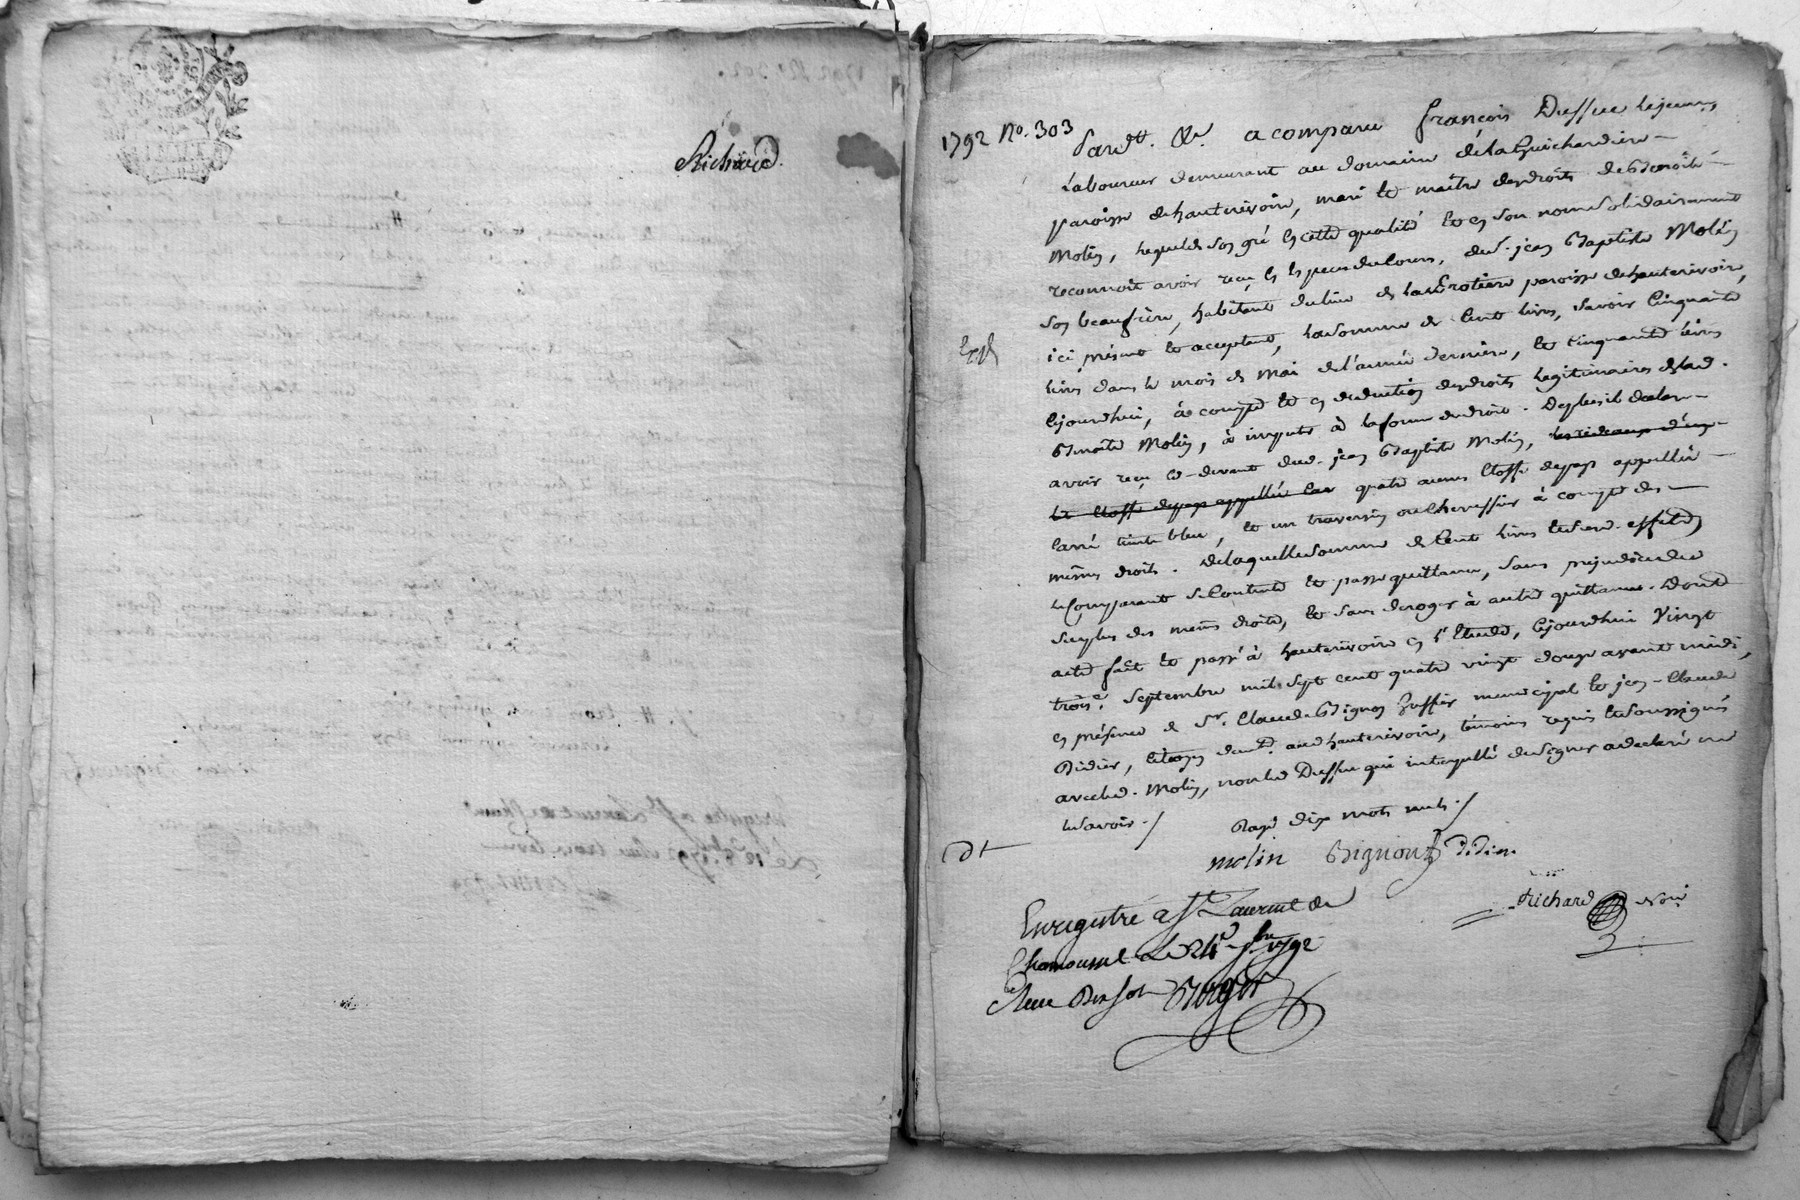 Richard.
1792 No. 303
Pardt. &c. a comparu françois Dussuc lejeune,
Laboureur demeurant au domaine de la Guichardiere
paroisse de hauterivoire, mari et maître des droits de Benoîte
Molin, lequel de son gré en cette qualité et en son nom solidairement
reconnoît avoir reçu en especes du cours, du s. jean Baptiste Molin
son beaufrère, habitant du lieu de paroisse de hauterivoire,
ici présent et acceptant, la somme de Cent livres, savoir Cinquante
livres dans le mois de Mai de l'année dernière, et cinquante livres
cejourdhui, à compte et en déduction des droits légitimaires de lad.
Benoîte Molin, à imputer à la forme du droit. De plus il déclare
avoir reçu ci-devant dud. jean Baptiste Molin, les rideaux d'un
lit Etoffe de pays appellée Car quatre aunes Etoffe de pays appellée
Carré teinte bleu, et un traversin ou Chevessier à compte des
mêmes droits. De laquelle somme de Cent livres et desd. effets
le Comparant se Contente et passe quittance, sans préjudice du
surplus des mêmes droits, et sans déroger à autre quittance. Dont
acte fait et passé à hauterivoire en l'Etude, cejourdhui Vingt
trois. Septembre mil sept cent quatre vingt douze avant midi,
en présence de Sr. Claude Bignon municipal et jean-Claude
Didier, Citoyen dud. hauterivoire, témoins requis et soussignés
avec led. Molin, non led Dussuc qui interpellé de signer a déclaré ne
le savoir ./ Rayé dix mots nuls ./
molin Bignon Didier
Richard Noire
Enregistré a St. Laurent de
Chamousset Le 24 7bre 1792